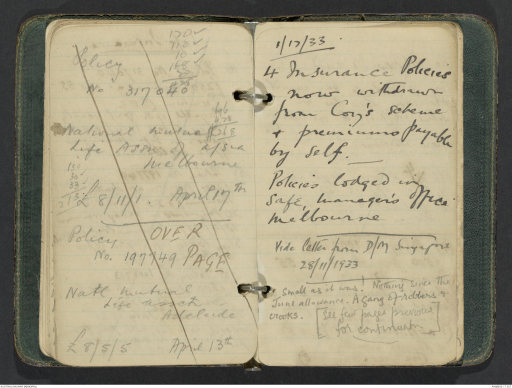 170 ✓
710 ✓
10 ✓
168
Policy
No 317040
National Mutual
Life Assn of A/sia
Melbourne
£ 8/11/1. April 17th
OVER
Policy
No. 197749 PAGE
Natl Mutual
Life Assocn
Adelaide
£ 8/5/5 April 13th
1/12/33.
4 Insurance Policies
now withdrawn
from Coy's scheme
+ premiums payable
by self.
Policies lodged in
safe, manager's office
Melbourne
Vide letter from D/M Singapore
28/11/1933
+ Small as it was! Nothing since the
June allowance. A gang of robbers &
crooks.
See few pages previous
for continuation